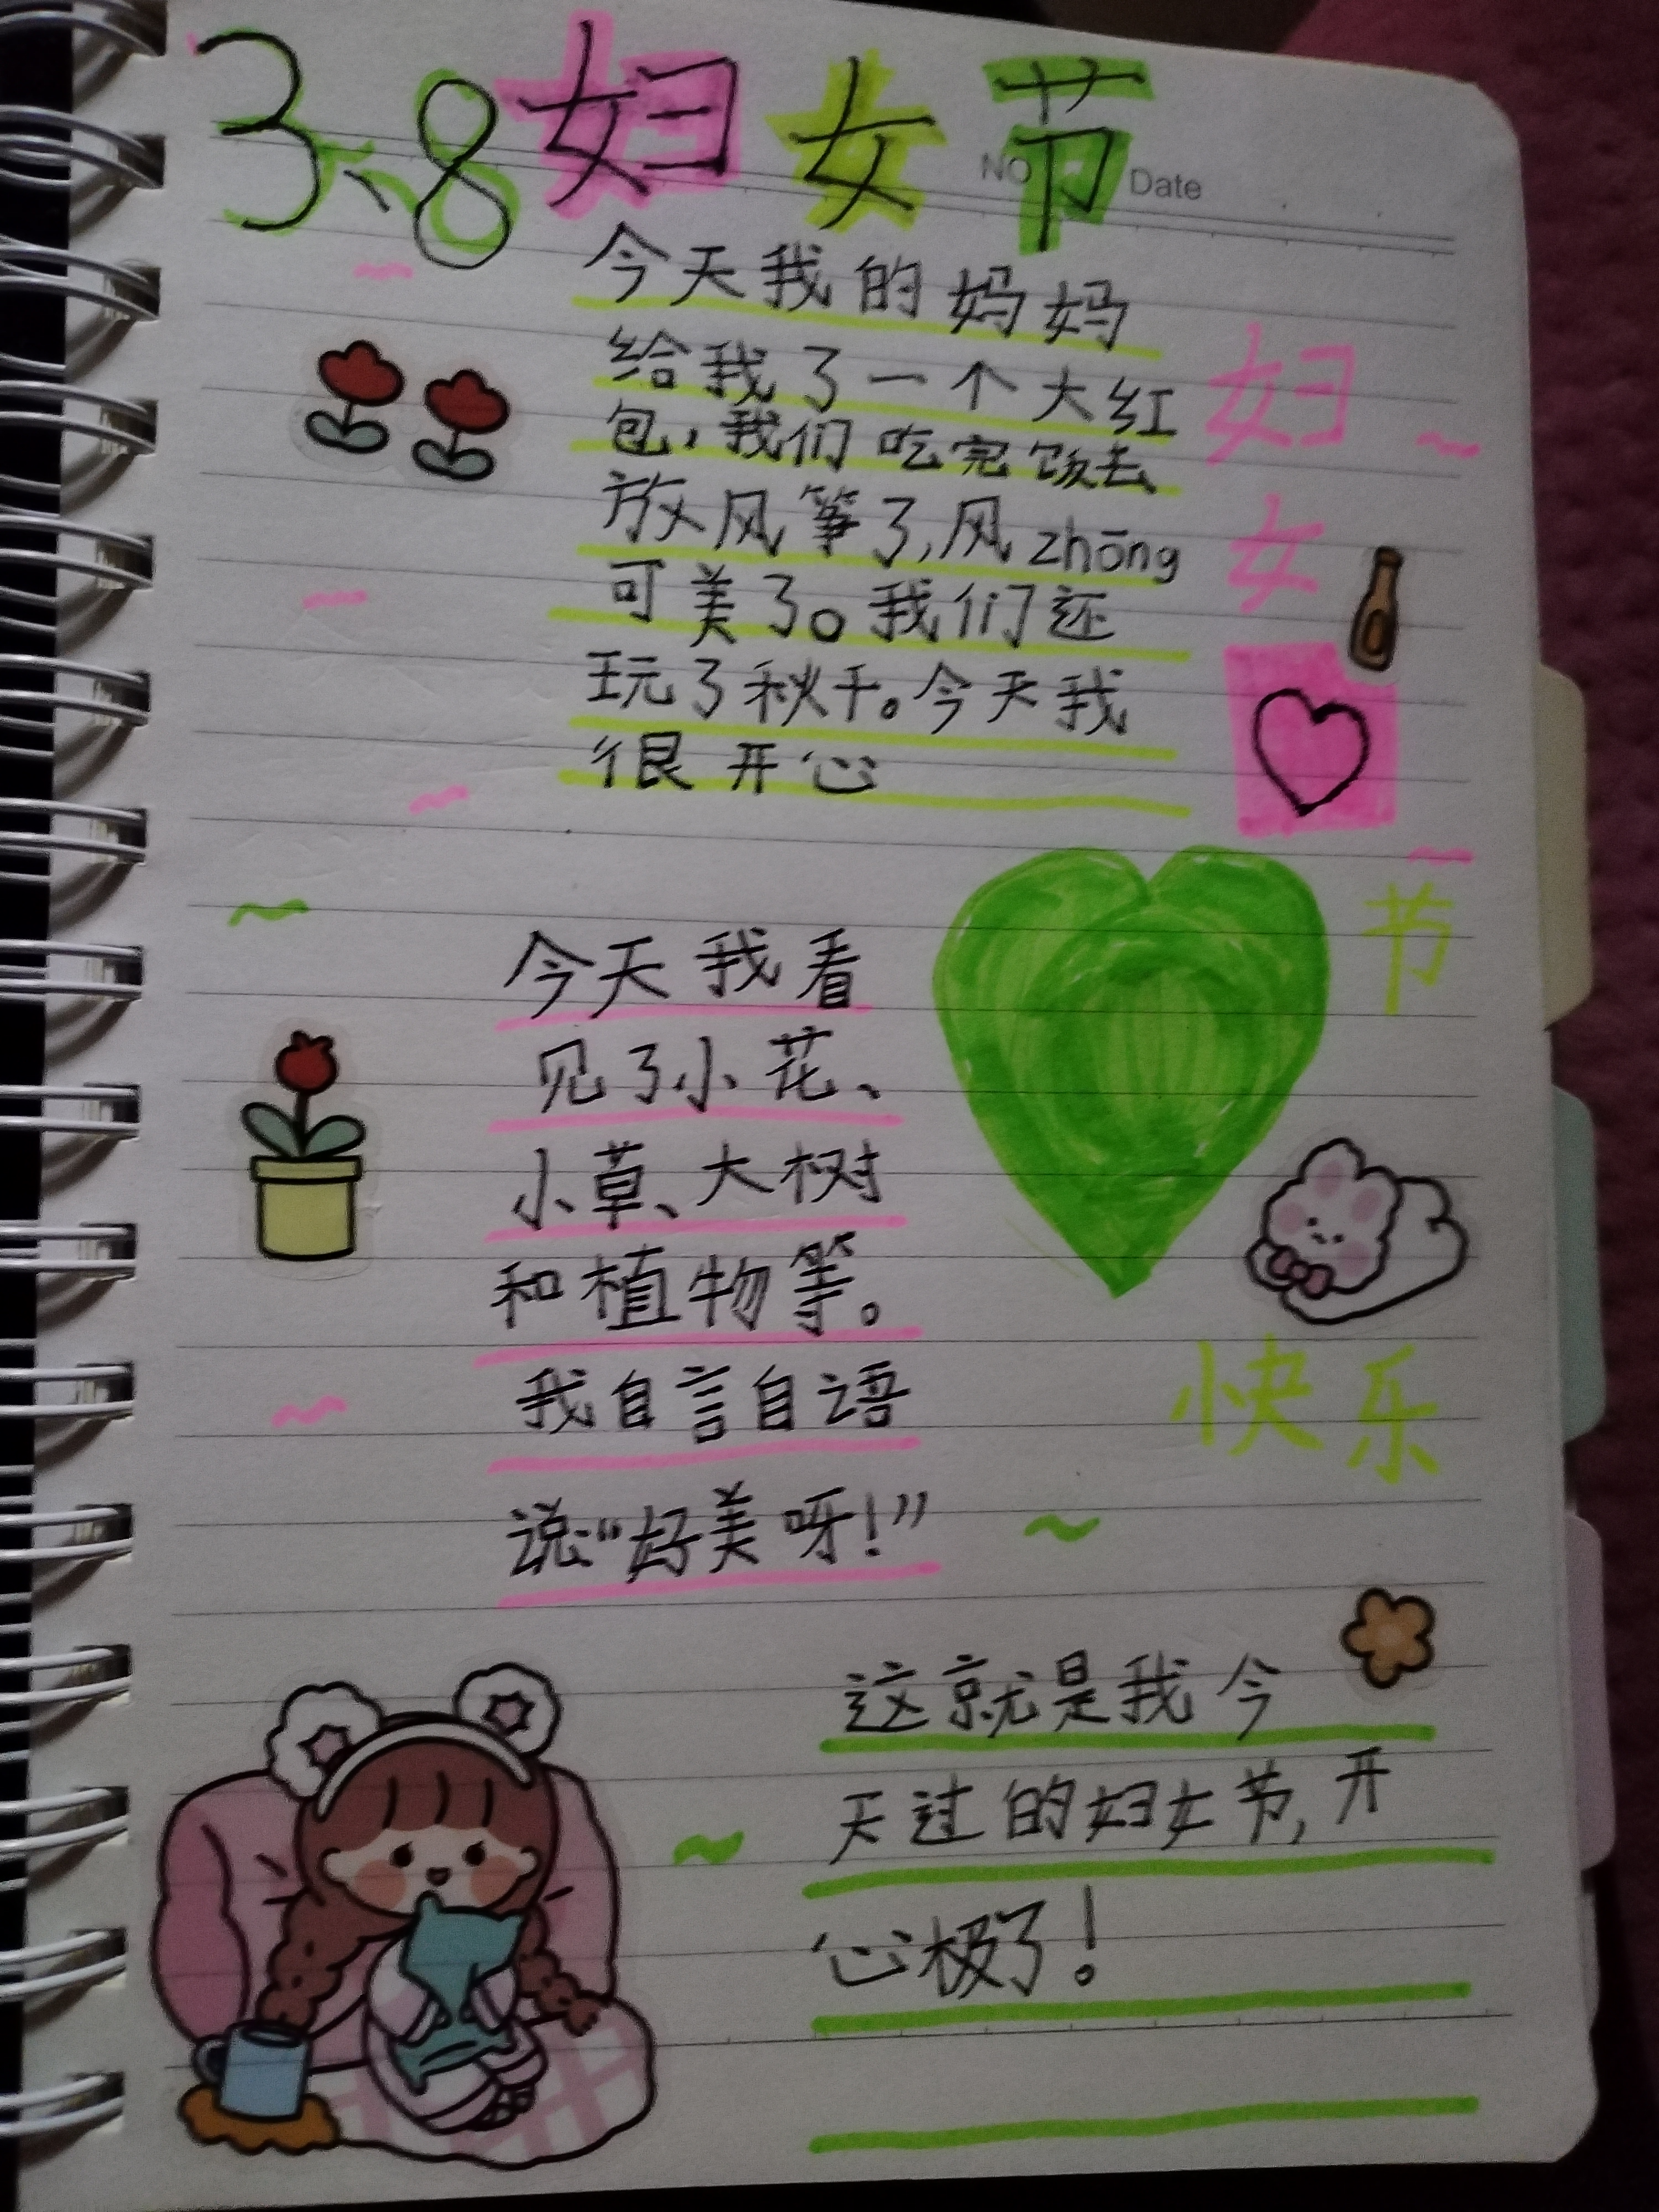 3、8妇女节
NO
Date
今天我的妈妈
给我了一个大红
包，我们吃完饭去
放风筝了，风zhōng
可美了。我们还
玩了秋千。今天我
很开心
妇
女
节
快乐
今天我看
见了小花、
小草、大树
和植物等。
我自言自语
说:“好美呀!”
这就是我今
天过的妇女节，开
心极了!